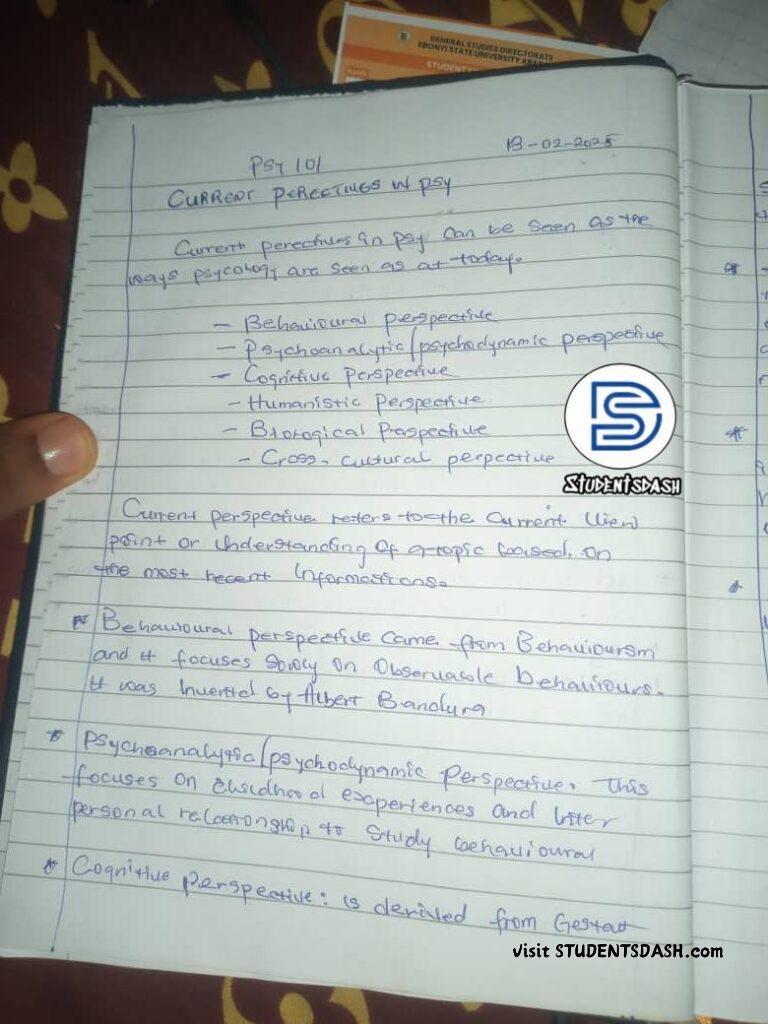 GENERAL STUDIES DIRECTORATE
EBONYI STATE UNIVERSITY
STUDENT
PSY 101
13-02-2025
CURRENT PERECTIVES IN PSY
Current perectives in psy can be seen as the
ways psycology are seen as at today.
- Behavioural perspective
- Psychoanalytic/psychodynamic perspective
- Cognitive perspective
- Humanistic Perspective
- Biological Perspective
- Cross-cultural perpective
STUDENTSDASH
Current perspective refers to the current view
point or understanding of a topic based on
the most recent informations.
* Behavioural perspective came from Behaviourism
and it focuses solely on Observable behaviours.
It was invented by Albert Bandura
* Psychoanalytic/psychodynamic Perspective. This
focuses on childhood experiences and inter
personal relationship to study behavioural
* Cognitive perspective: is derived from Gestalt
visit STUDENTSDASH.com